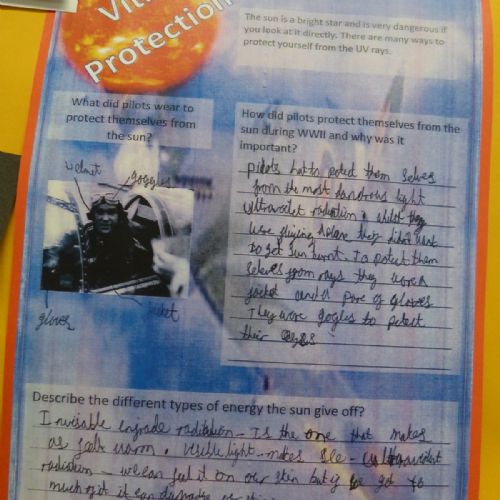 Vit
Protection
The sun is a bright star and is very dangerous if
you look at it directly. There are many ways to
protect yourself from the UV rays.
What did pilots wear to
protect themselves from
the sun?
helmet goggles
glover jacket
How did pilots protect themselves from the
sun during WWII and why was it
important?
pilots had to poted them selves
from the most dandrous light
ultravoilet radiation
were plane they didnt want
to get sun burnt. To potect them
selves from rays they wore a
jacket and a pare of gloves
They wore gogles to potect
their
Describe the different types of energy the sun give off?
Invisable radiation - Is the one that makes
us feel warm. Visible light - makes
radiation - we can feel it on our skin but if got to
much of it it can